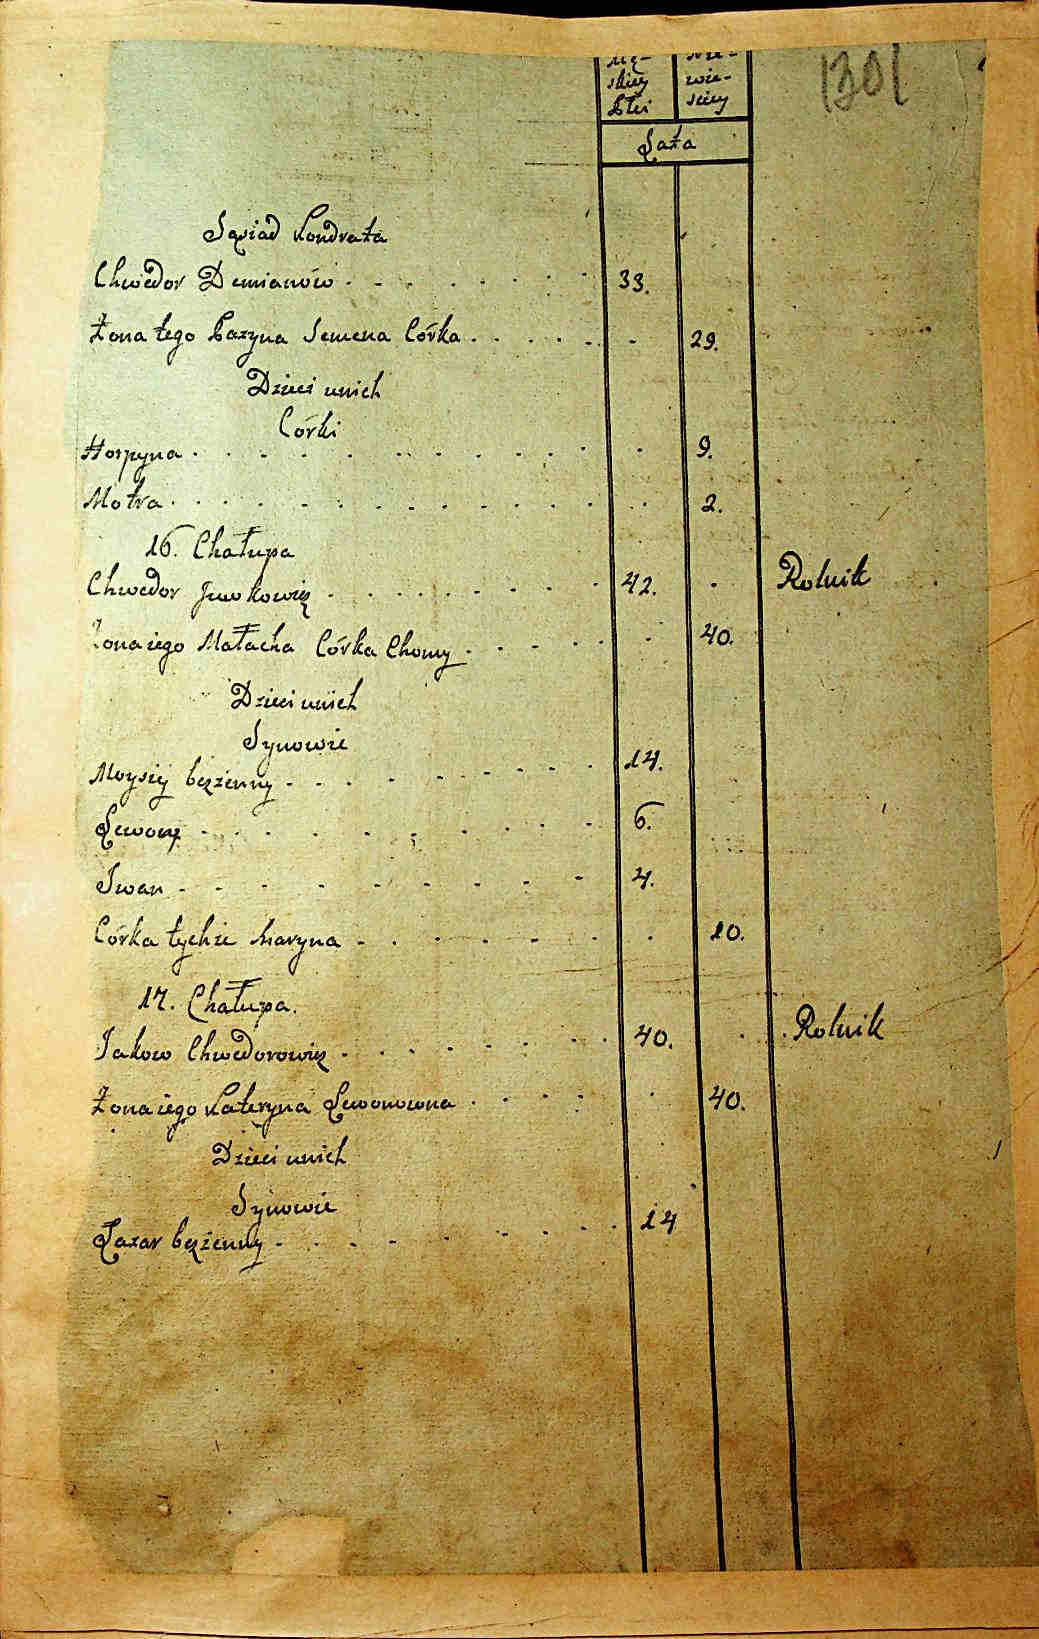 Mę- Nie-
skiey wie-
Płci sciey
1301
Lata
Sąsiad Kondrata
Chwedor Demianów 33.
Żona tego Pazyna Semena Córka 29.
Dzieci u nich
Córki
Horpyna 9.
Motra 2.
16. Chałupa
Chwedor Jwokowicz 42. Rolnik
Żona iego Małacha Córka Chomy 40.
Dzieci u nich
Synowie
Moysiy bezżenny 14.
Lewon 6.
Iwan 4.
Córka tychże Maryna 10.
17. Chałupa.
Jakow Chwedorowicz 40. Rolnik
Żona iego Kateryna Lewonowna 40.
Dzieci u nich
Synowie
Łazar bezżenny 14